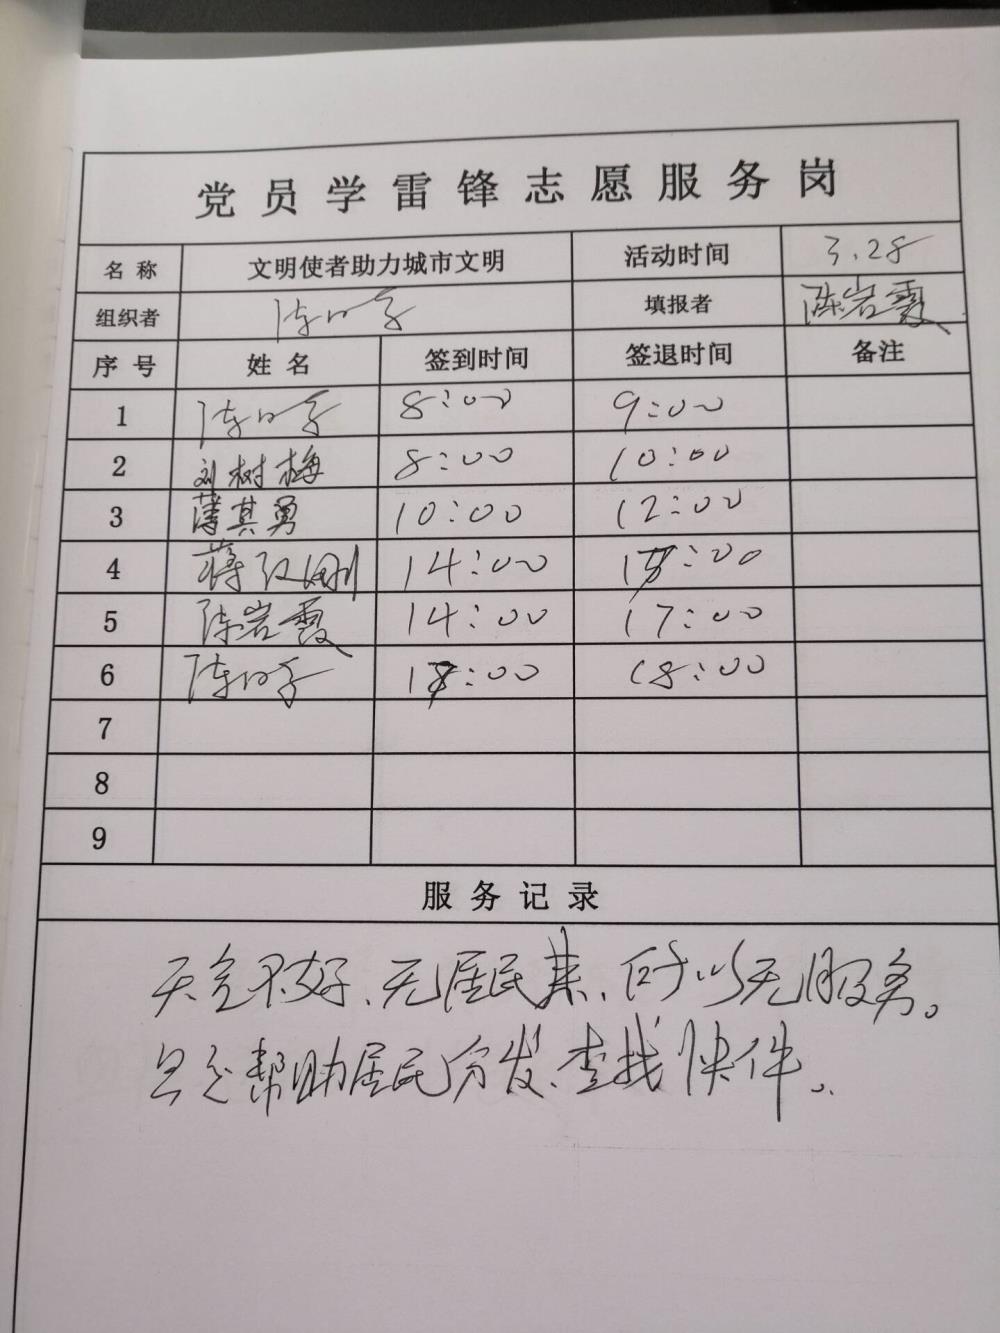 党员学雷锋志愿服务岗
名 称 文明使者助力城市文明 活动时间 3.28
组织者 陈 填报者 陈岩霞
序 号 姓 名 签到时间 签退时间 备注
1 陈 8:00 9:00
2 刘树梅 8:00 10:00
3 薄其勇 10:00 12:00
4 蒋红刚 14:00 17:00
5 陈岩霞 14:00 17:00
6 陈 17:00 18:00
7
8
9
服 务 记 录
天气不好、无居民来,所以无服务。
只是帮助居民分发、查找快件。